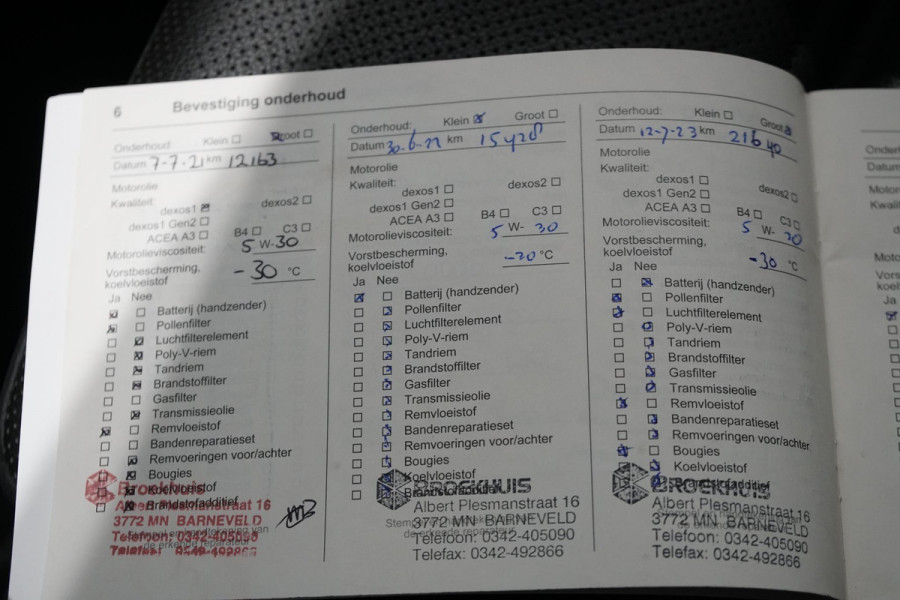 6 Bevestiging onderhoud
Onderhoud: Klein Groot
Datum 7-7-21 km 12163
Motorolie
Kwaliteit:
dexos1 dexos2
dexos1 Gen2
ACEA A3 B4 C3
Motorolieviscositeit: 5 W-30
Vorstbescherming,
koelvloeistof -30 °C
Ja Nee
Batterij (handzender)
Pollenfilter
Luchtfilterelement
Poly-V-riem
Tandriem
Brandstoffilter
Gasfilter
Transmissieolie
Remvloeistof
Bandenreparatieset
Remvoeringen voor/achter
Bougies
Koelvloeistof
Brandstofadditief
Broekhuis
Albert Plesmanstraat 16
3772 MN BARNEVELD
Telefoon: 0342-405090
Telefax: 0342-492866
Onderhoud: Klein Groot
Datum 30-6-22 km
Motorolie
Kwaliteit:
dexos1 dexos2
dexos1 Gen2
ACEA A3 B4 C3
Motorolieviscositeit: 5 W- 30
Vorstbescherming,
koelvloeistof °C
Ja Nee
Batterij (handzender)
Pollenfilter
Luchtfilterelement
Poly-V-riem
Tandriem
Brandstoffilter
Gasfilter
Transmissieolie
Remvloeistof
Bandenreparatieset
Remvoeringen voor/achter
Bougies
Koelvloeistof
Brandstofadditief
BROEKHUIS
Albert Plesmanstraat 16
3772 MN BARNEVELD
Telefoon: 0342-405090
Telefax: 0342-492866
Onderhoud: Klein Groot
Datum 12-7-23 km 21640
Motorolie
Kwaliteit:
dexos1 dexos2
dexos1 Gen2
ACEA A3 B4 C3
Motorolieviscositeit: 5 W- 30
Vorstbescherming,
koelvloeistof -30 °C
Ja Nee
Batterij (handzender)
Pollenfilter
Luchtfilterelement
Poly-V-riem
Tandriem
Brandstoffilter
Gasfilter
Transmissieolie
Remvloeistof
Bandenreparatieset
Remvoeringen voor/achter
Bougies
Koelvloeistof
Brandstofadditief
BROEKHUIS
Albert Plesmanstraat 16
3772 MN BARNEVELD
Telefoon: 0342-405090
Telefax: 0342-492866
Ja